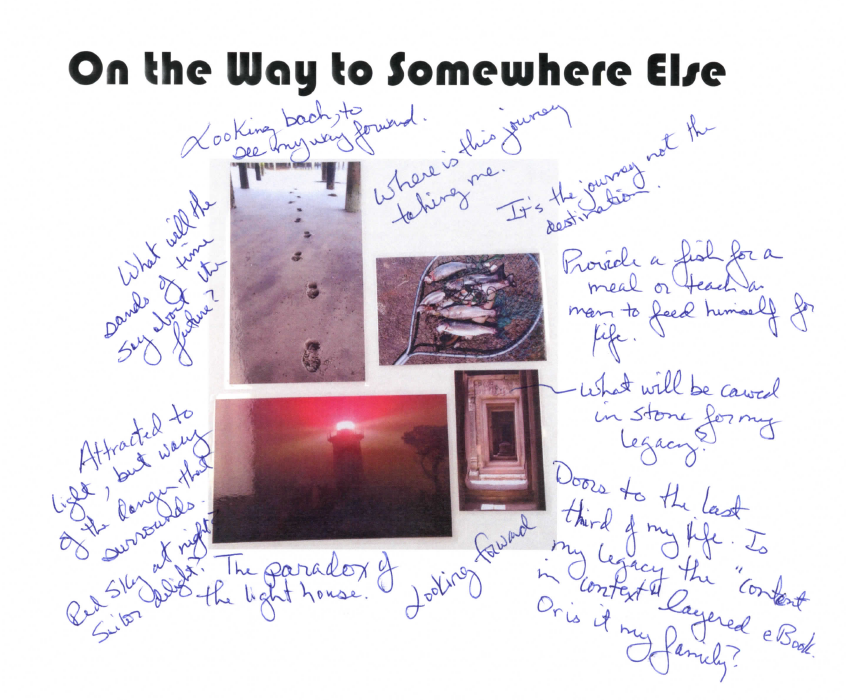 On the Way to Somewhere Else
Looking back, to
see my way forward.
Where is this journey
taking me.
It's the journey not the
destination.
What will the
sands of time
say about the
future?
Provide a fish for a
meal or teach a
man to feed himself for
life.
What will be carved
in stone for my
legacy?
Attracted to
light, but wary
of the danger that
surrounds.
Red sky at night?
Sailor delight?
The paradox of
the light house.
Looking forward
Doors to the last
third of my life. Is
my legacy the "content
in context" layered eBook.
Or is it my family?